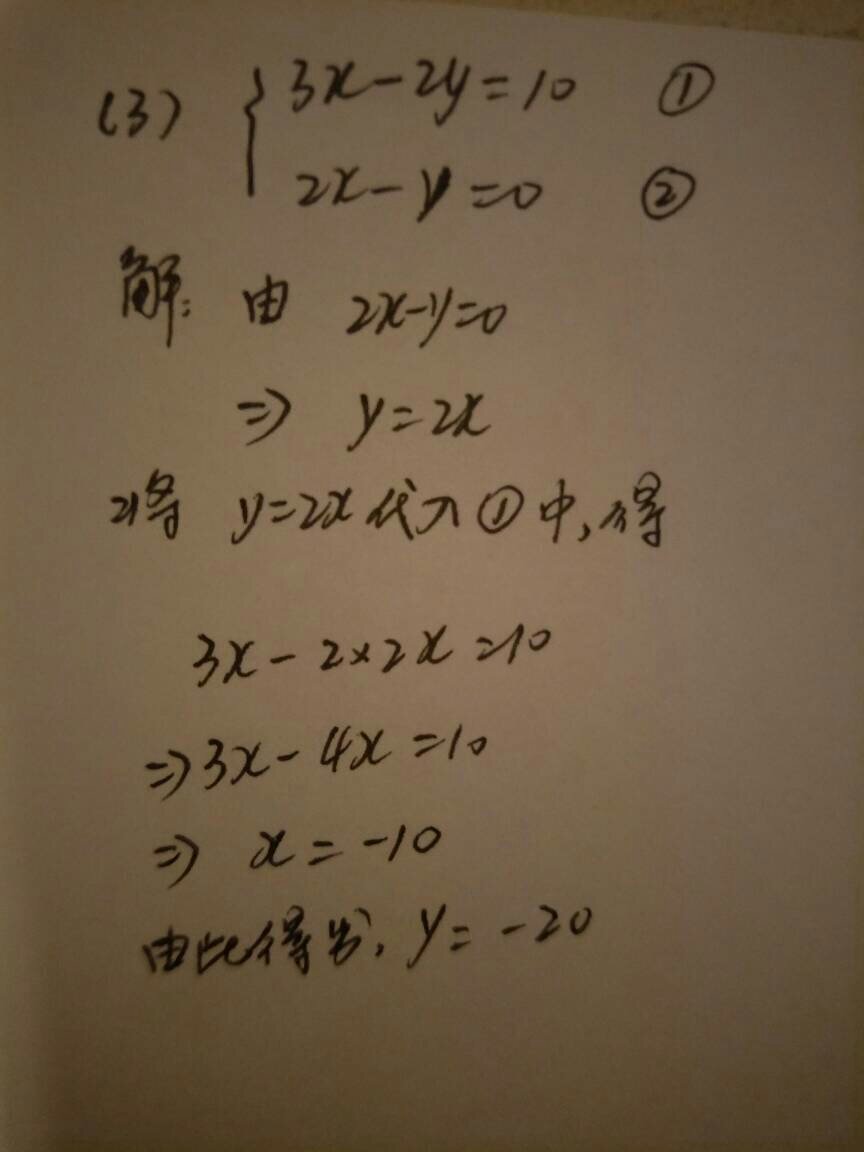 (3) { 3x-2y=10 ①
2x-y=0 ②
解: 由 2x-y=0
⇒ y=2x
将 y=2x代入①中,得
3x-2×2x=10
⇒3x-4x=10
⇒ x=-10
由此得出, y=-20